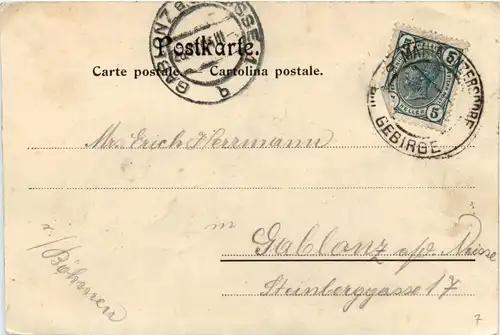 Postkarte.
Carte postale. Cartolina postale.
GABLONZ a.
5 5
HELLER
5
GEBIRGE
Mr. Erich Herrmann
in
Gablonz a/d Neisse
Steinberggasse 17
i/Böhmen
7